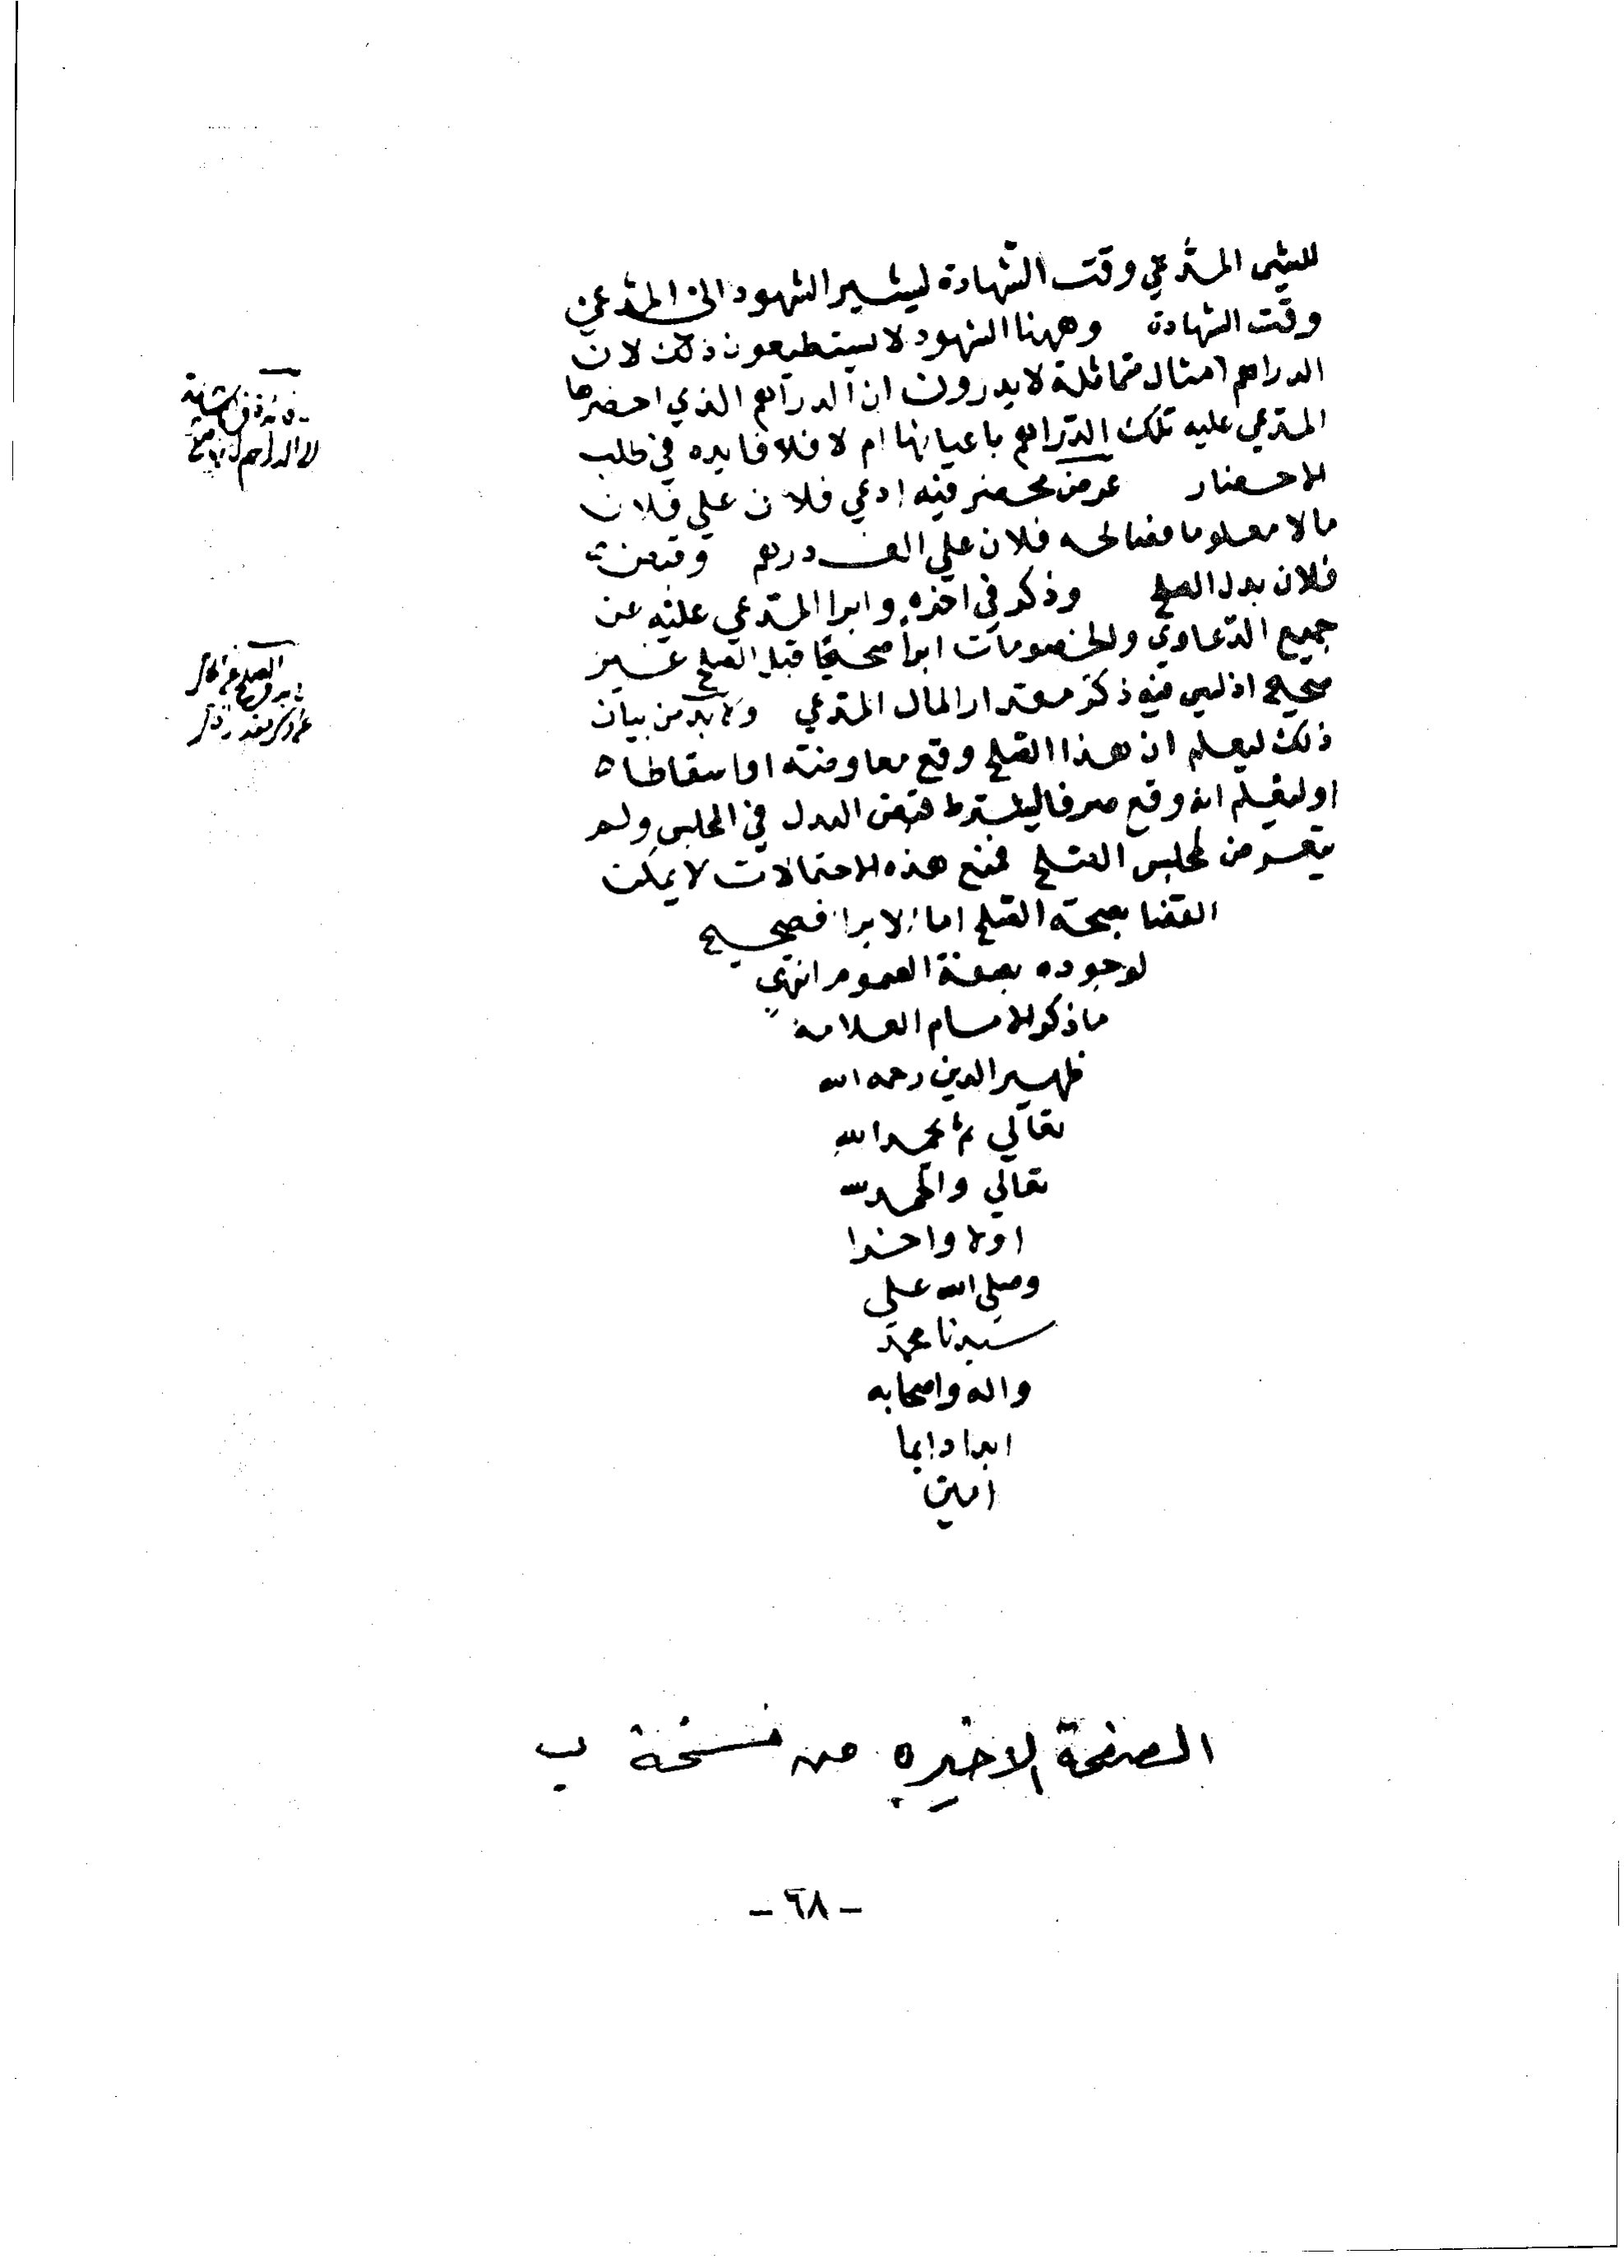 للشي المدعي وقت الشهادة ليشير الشهود الى المدعي
وقت الشهادة وههنا الشهود لا يستطيعون ذلك لان
الدراهم امثال متماثلة لا يدرون ان الدراهم الذي احضرها
المدعي عليه تلك الدراهم باعيانها ام لا فلا فايده في طلب
الاحضار عرض محضر فيه ادعي فلان علي فلان
مالا معلوما فصالحه فلان علي الف درهم وقبض
فلان بدل الصلح وذكر في اخره وابرا المدعي عليه عن
جميع الدعاوي والخصومات ابرأ صحيحا قيل الصلح غير
صحيح اذ ليس فيه ذكر مقدار المال المدعي ولا بد من بيان
ذلك ليعلم ان هذا الصلح وقع معاوضة او اسقاطا
او ليعلم انه وقع صرفا ليشترط قبض البدل في المجلس ولم
يتعرض لمجلس الصلح فمع هذه الاحتمالات لا يمكن
القضا بصحة الصلح اما الابرا فصحيح
لوجوده بصفة العموم انتهي
ما ذكر الامام العلامة
ظهير الدين رحمه الله
تعالي تم بحمد الله
تعالي والحمد لله
اولا واخرا
وصلي الله علي
سيدنا محمد
واله واصحابه
ابدا دايما
امين
الصفحة الاخيره من نسخة ب
- ٦٨ -